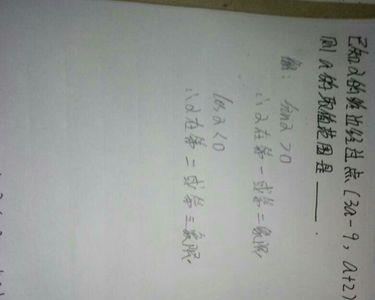 已知α的终边经过点(3a-9, a+2)
则a的取值范围是____.
解: sinα>0
∴α在第一或第二象限
cosα<0
∴α在第二或第三象限